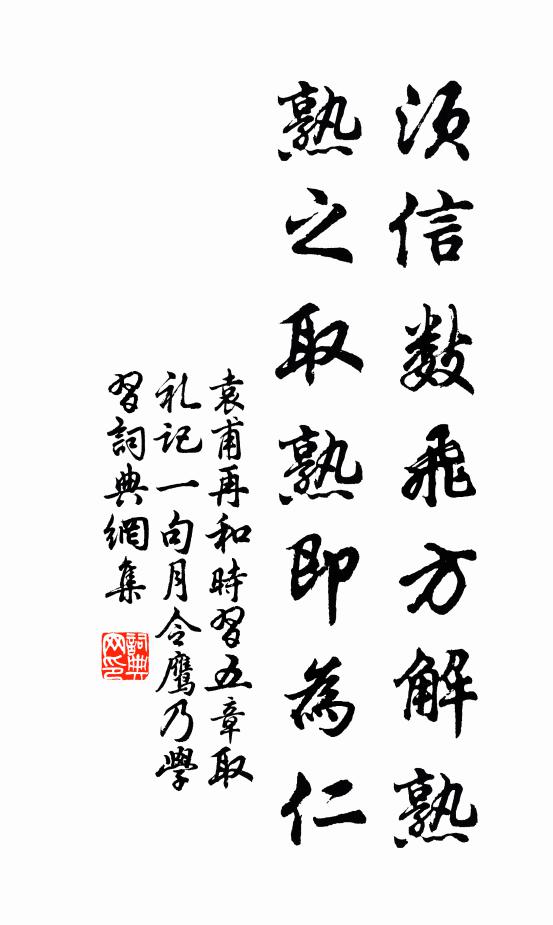 須信數飛方解熟
熟之取熟即為仁
袁甫再和時習五章取
礼記一句月令鷹乃學
習詞典網集
詞典
网印